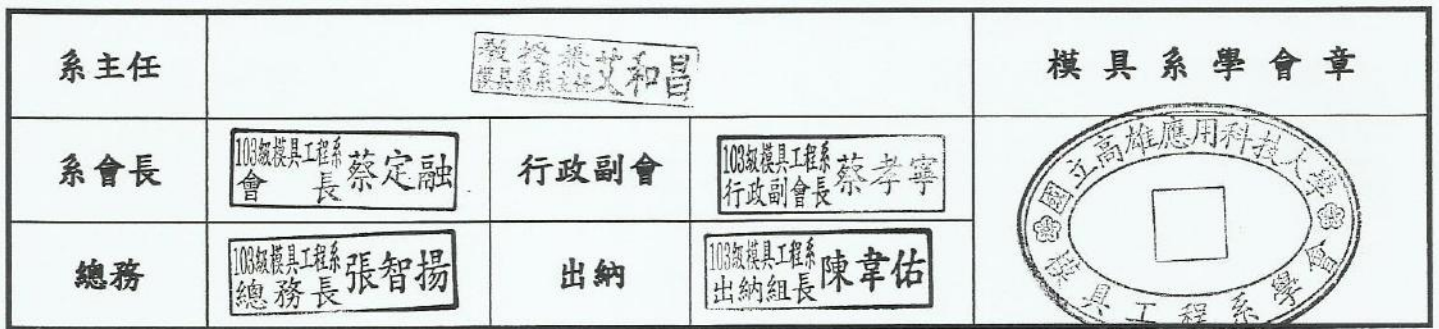 系主任
教授兼
模具系系主任
艾和昌
模具系學會章
系會長
103級模具工程系
會長
蔡定融
行政副會
103級模具工程系
行政副會長
蔡孝寧
國立高雄應用科技大學
模具工程系學會
總務
103級模具工程系
總務長
張智揚
出納
103級模具工程系
出納組長
陳韋佑